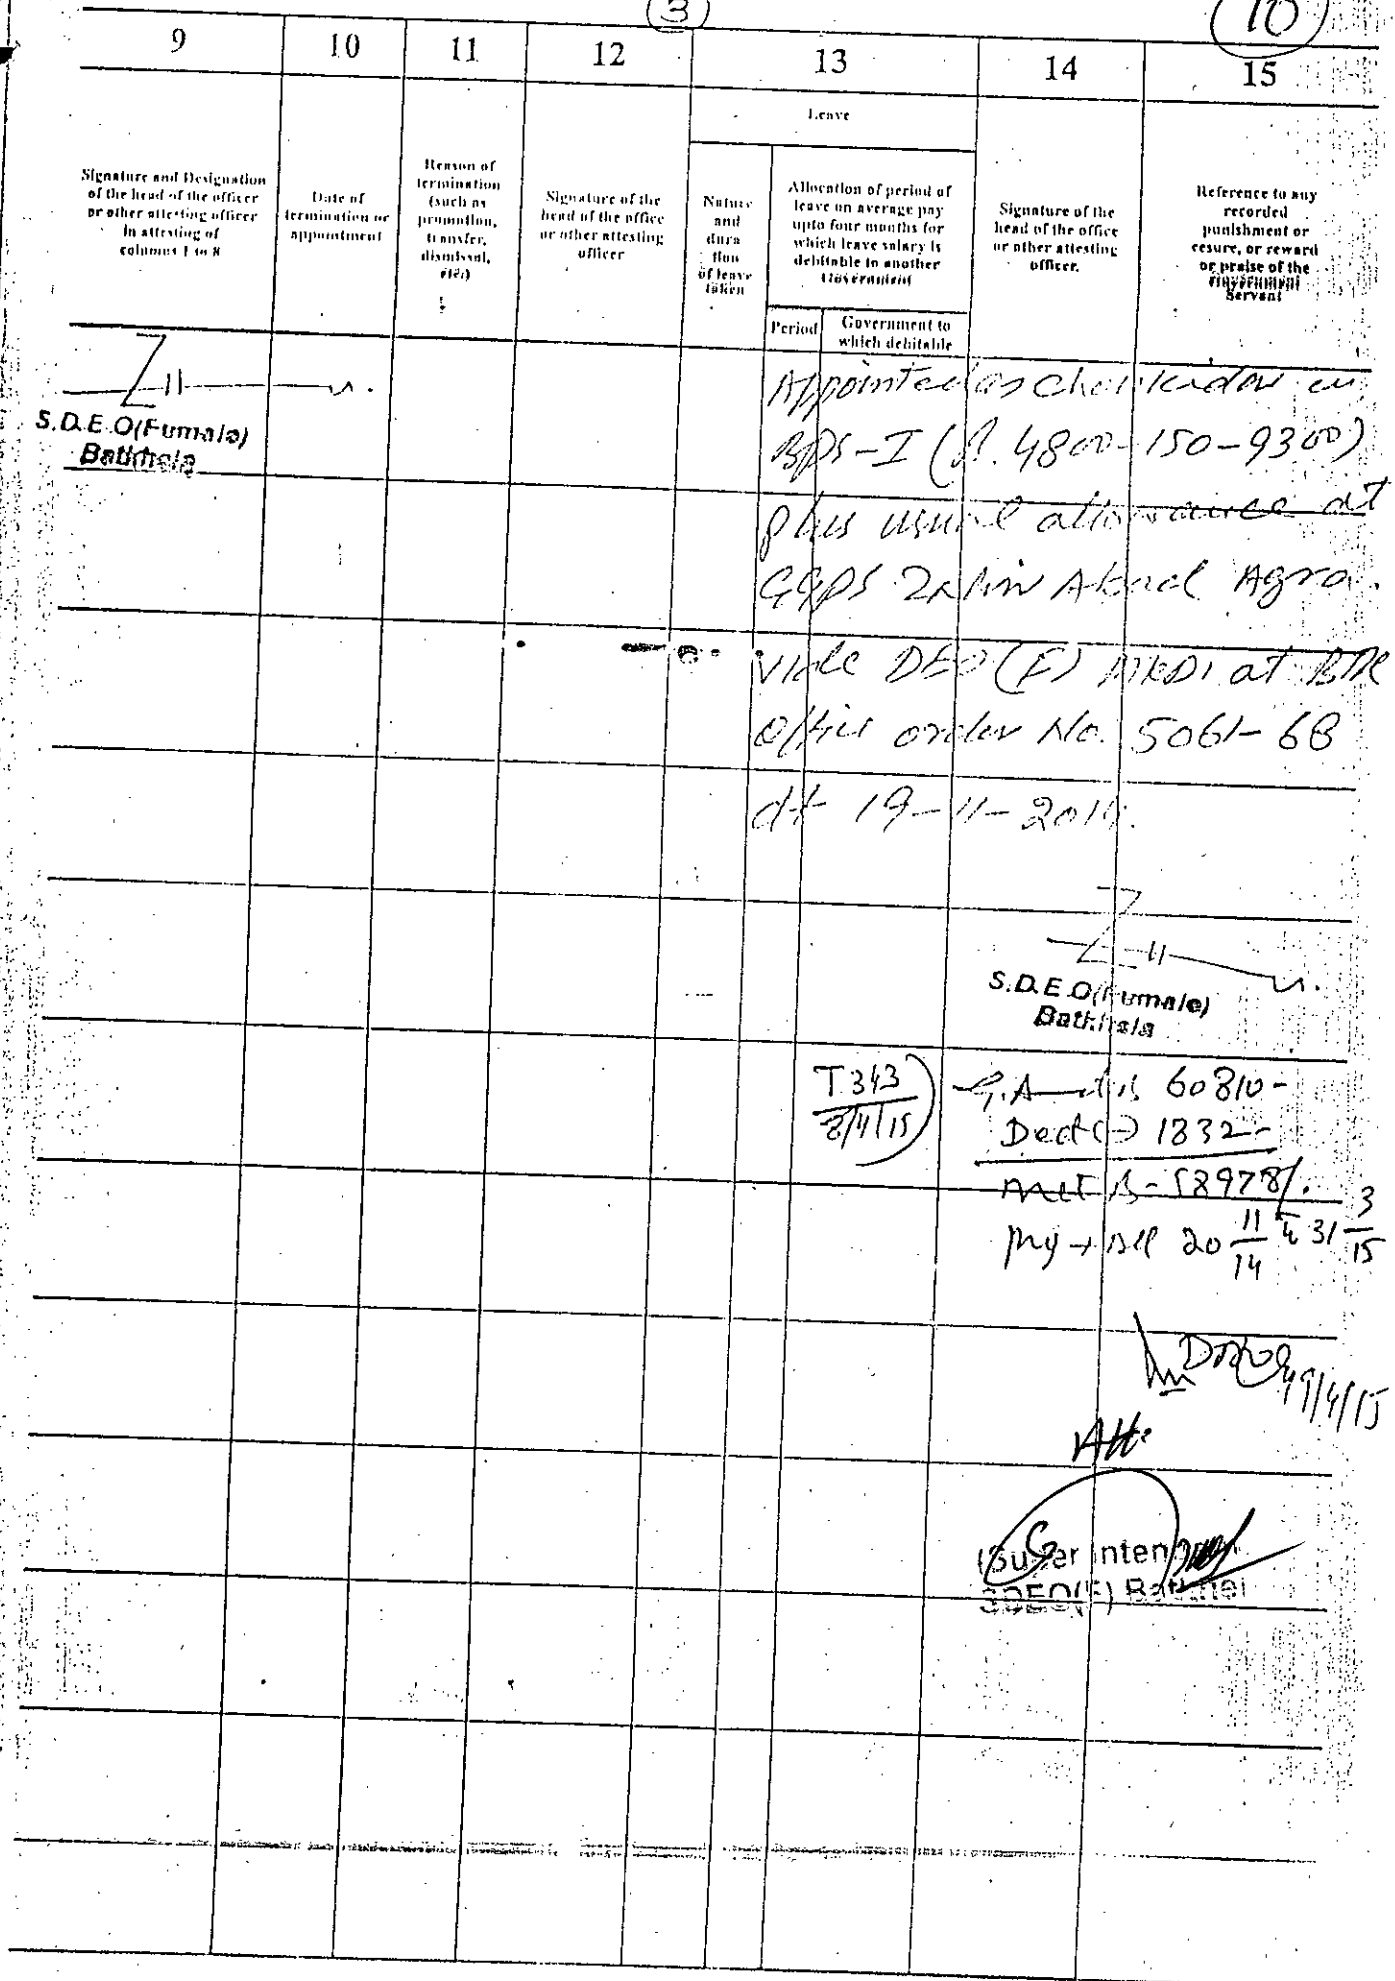 3
10
9 10 11 12 13 14 15
Leave
Signature and Designation
of the head of the officer
or other attesting officer
in attesting of
columns 1 to 8
Date of
termination or
appointment
Reason of
termination
(such as
promotion,
transfer,
dismissal,
etc)
Signature of the
head of the office
or other attesting
officer
Nature
and
dura
tion
of leave
taken
Allocation of period of
leave on average pay
upto four months for
which leave salary is
debitable to another
Government
Period
Government to
which debitable
Signature of the
head of the office
or other attesting
officer.
Reference to any
recorded
punishment or
cesure, or reward
or praise of the
Government
Servant
S.D.E.O(Fumale)
Batkhela
Appointed as chowkidar in
BPS-I (P. 4800-150-9300)
plus usual allowance at
GGPS Zalim Abad Agra.
vide DEO (F) MKD at BTK
Office order No. 5061-68
dt 19-11-2014.
S.D.E.O(Fumale)
Batkhela
T343
8/4/15
60810-
Dect (-) 1832-
Net 58978/.
20 11/14 31 3/15
9/4/15
Superintendent
SDEO(F) Batkhel